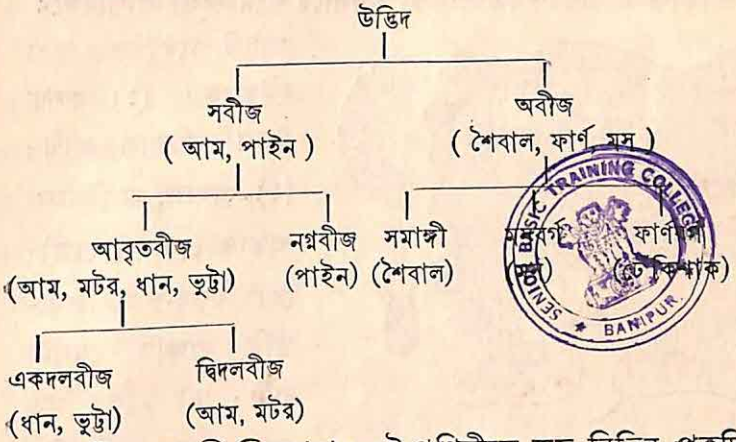 উদ্ভিদ
সবীজ
( আম, পাইন )
অবীজ
( শৈবাল, ফার্ণ, মস্ )
আবৃতবীজ
(আম, মটর, ধান, ভুট্টা)
নগ্নবীজ
(পাইন)
সমাঙ্গী
(শৈবাল)
মসবর্গ
ফার্ণবর্গ
একদলবীজ
(ধান, ভুট্টা)
দ্বিদলবীজ
(আম, মটর)
SENIOR BASIC TRAINING COLLEGE
* BANIPUR.